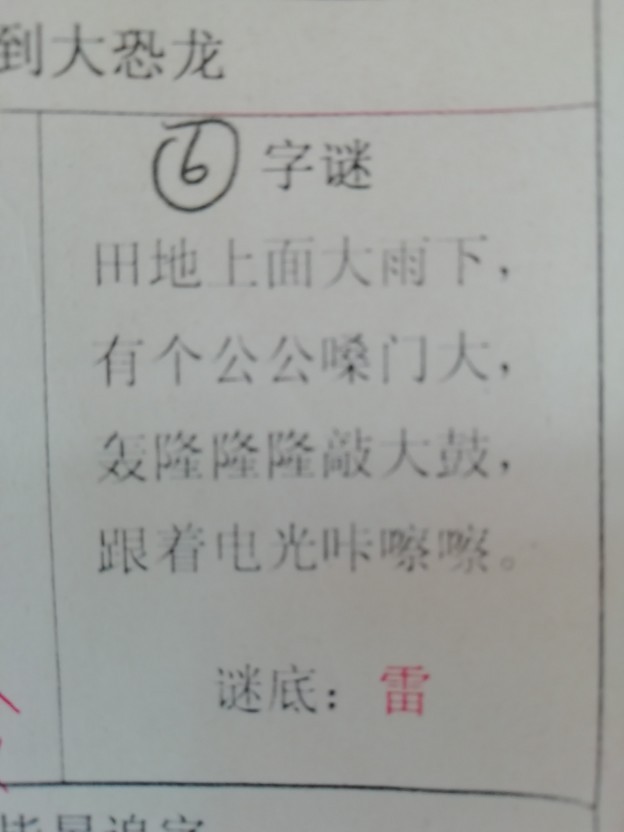 到大恐龙
⑥ 字谜
田地上面大雨下，
有个公公嗓门大，
轰隆隆隆敲大鼓，
跟着电光咔嚓嚓。
谜底：雷